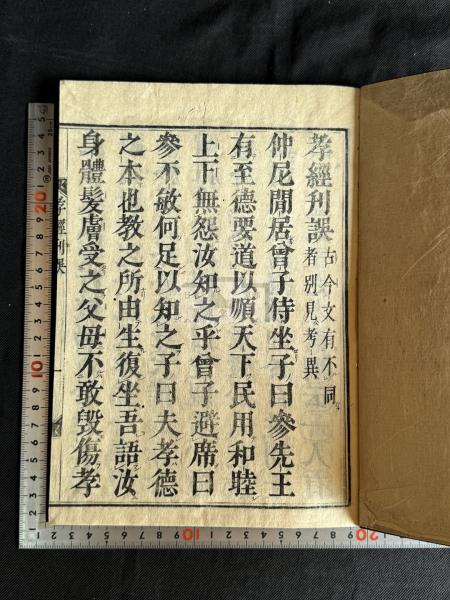 孝經刊誤 古今文有不同
者別見考異
仲尼閒居曾子侍坐子曰參先王
有至德要道以順天下民用和睦
上下無怨汝知之乎曾子避席曰
參不敏何足以知之子曰夫孝德
之本也教之所由生復坐吾語汝
身體髮膚受之父母不敢毀傷孝
孝經刊誤